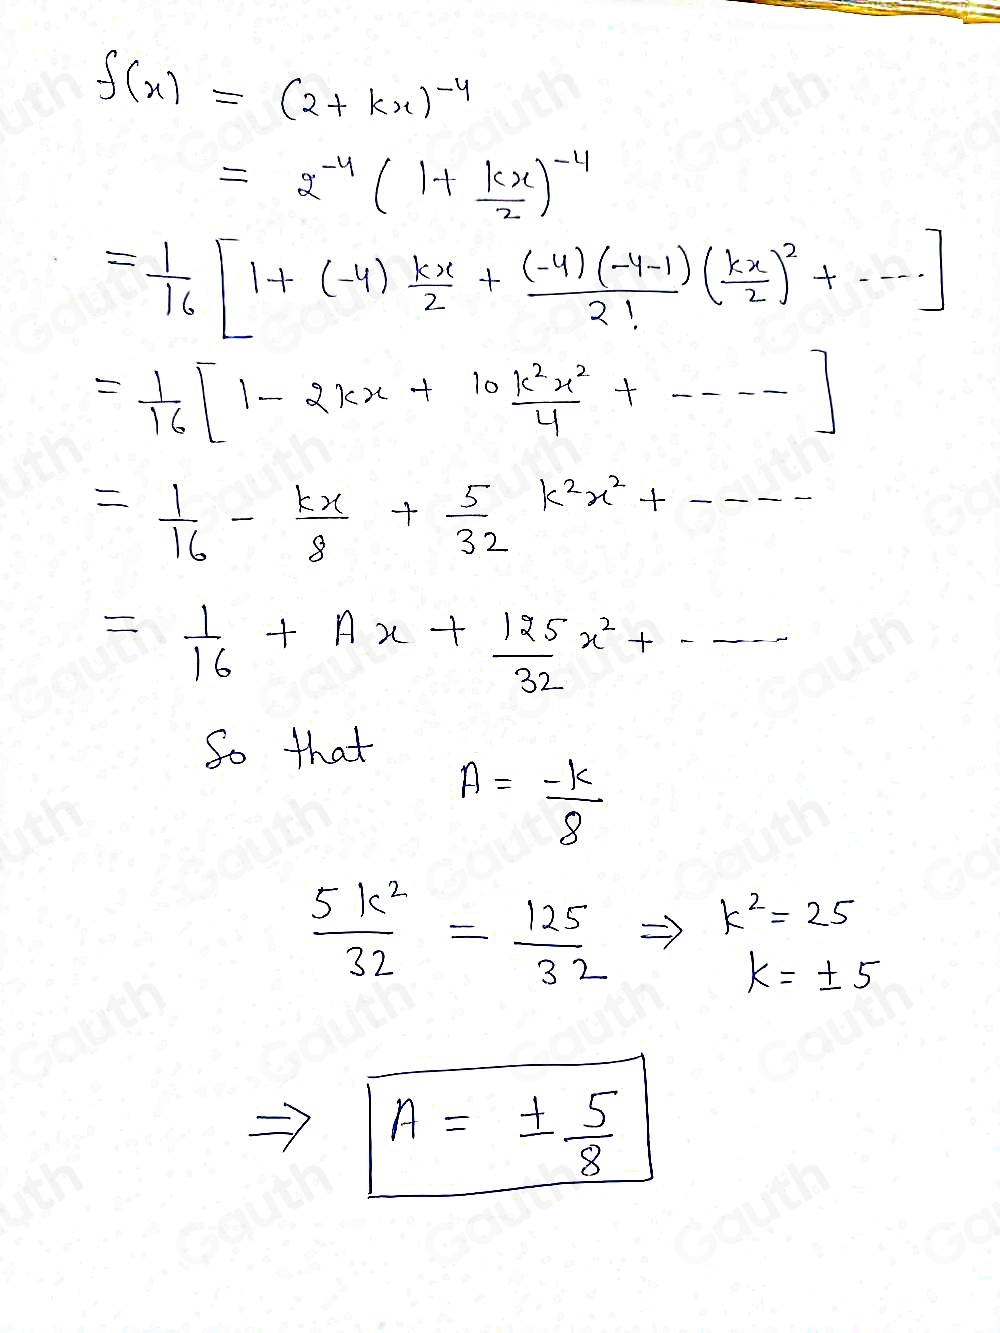 f(x) = (2 + kx)^-4
= 2^-4 (1 + kx/2)^-4
= 1/16 [1 + (-4) kx/2 + (-4)(-4-1)/2! (kx/2)^2 + ----]
= 1/16 [1 - 2kx + 10 k^2x^2/4 + ----]
= 1/16 - kx/8 + 5/32 k^2x^2 + ----
= 1/16 + Ax + 125/32 x^2 + ----
So that
A = -k/8
5k^2/32 = 125/32 ⇒ k^2 = 25
k = ±5
⇒ A = ± 5/8